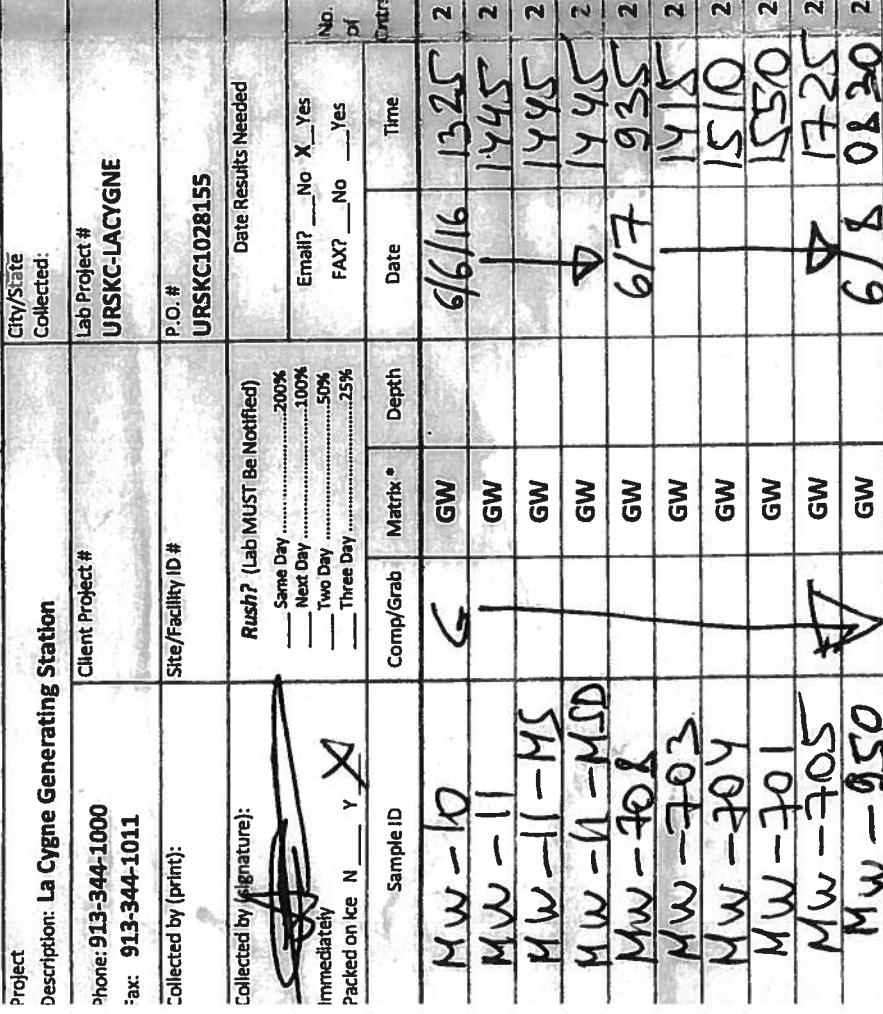 Project
Description: La Cygne Generating Station
City/State
Collected:
Phone: 913-344-1000
Fax: 913-344-1011
Client Project #
Lab Project #
URSKC-LACYGNE
Collected by (print):
Site/Facility ID #
P.O. #
URSKC1028155
Collected by (signature):
Rush? (Lab MUST Be Notified)
___ Same Day ....................200%
___ Next Day ....................100%
___ Two Day ....................50%
___ Three Day ....................25%
Date Results Needed
Email? ___No X_Yes
FAX? ___No ___Yes
No.
of
Cntrs
Immediately
Packed on Ice N ___ Y X
Sample ID Comp/Grab Matrix * Depth Date Time
MW-10 G GW 6/6/16 1325 2
MW-11 GW 1445 2
MW-11-MS GW 1445 2
MW-11-MSD GW 1445 2
MW-708 GW 6/7 935 2
MW-703 GW 1415 2
MW-704 GW 1510 2
MW-701 GW 1550 2
MW-705 GW 1725 2
MW-950 GW 6/8 0830 2